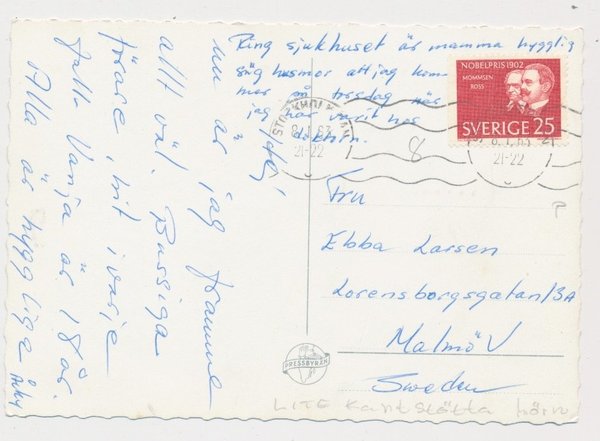 Ring sjukhuset är mamma hygglig
säg husmor att jag kom
mer på tisdag när
jag varit hos
doktorn.
Hej
nu är jag framme
allt väl. Bussiga
förare, bit ivarje
fall. Vanja är 18 år.
Alla är hyggliga
NOBELPRIS 1902
MOMMSEN
ROSS
SVERIGE 25
STOCKHOLM
8.1.63
21-22
8.1.63
21-22
8
P
Fru
Ebba Larsen
Lorensborgsgatan 13A
Malmö V
Sweden
PRESSBYRÅN
LITE Kantstötta hörn